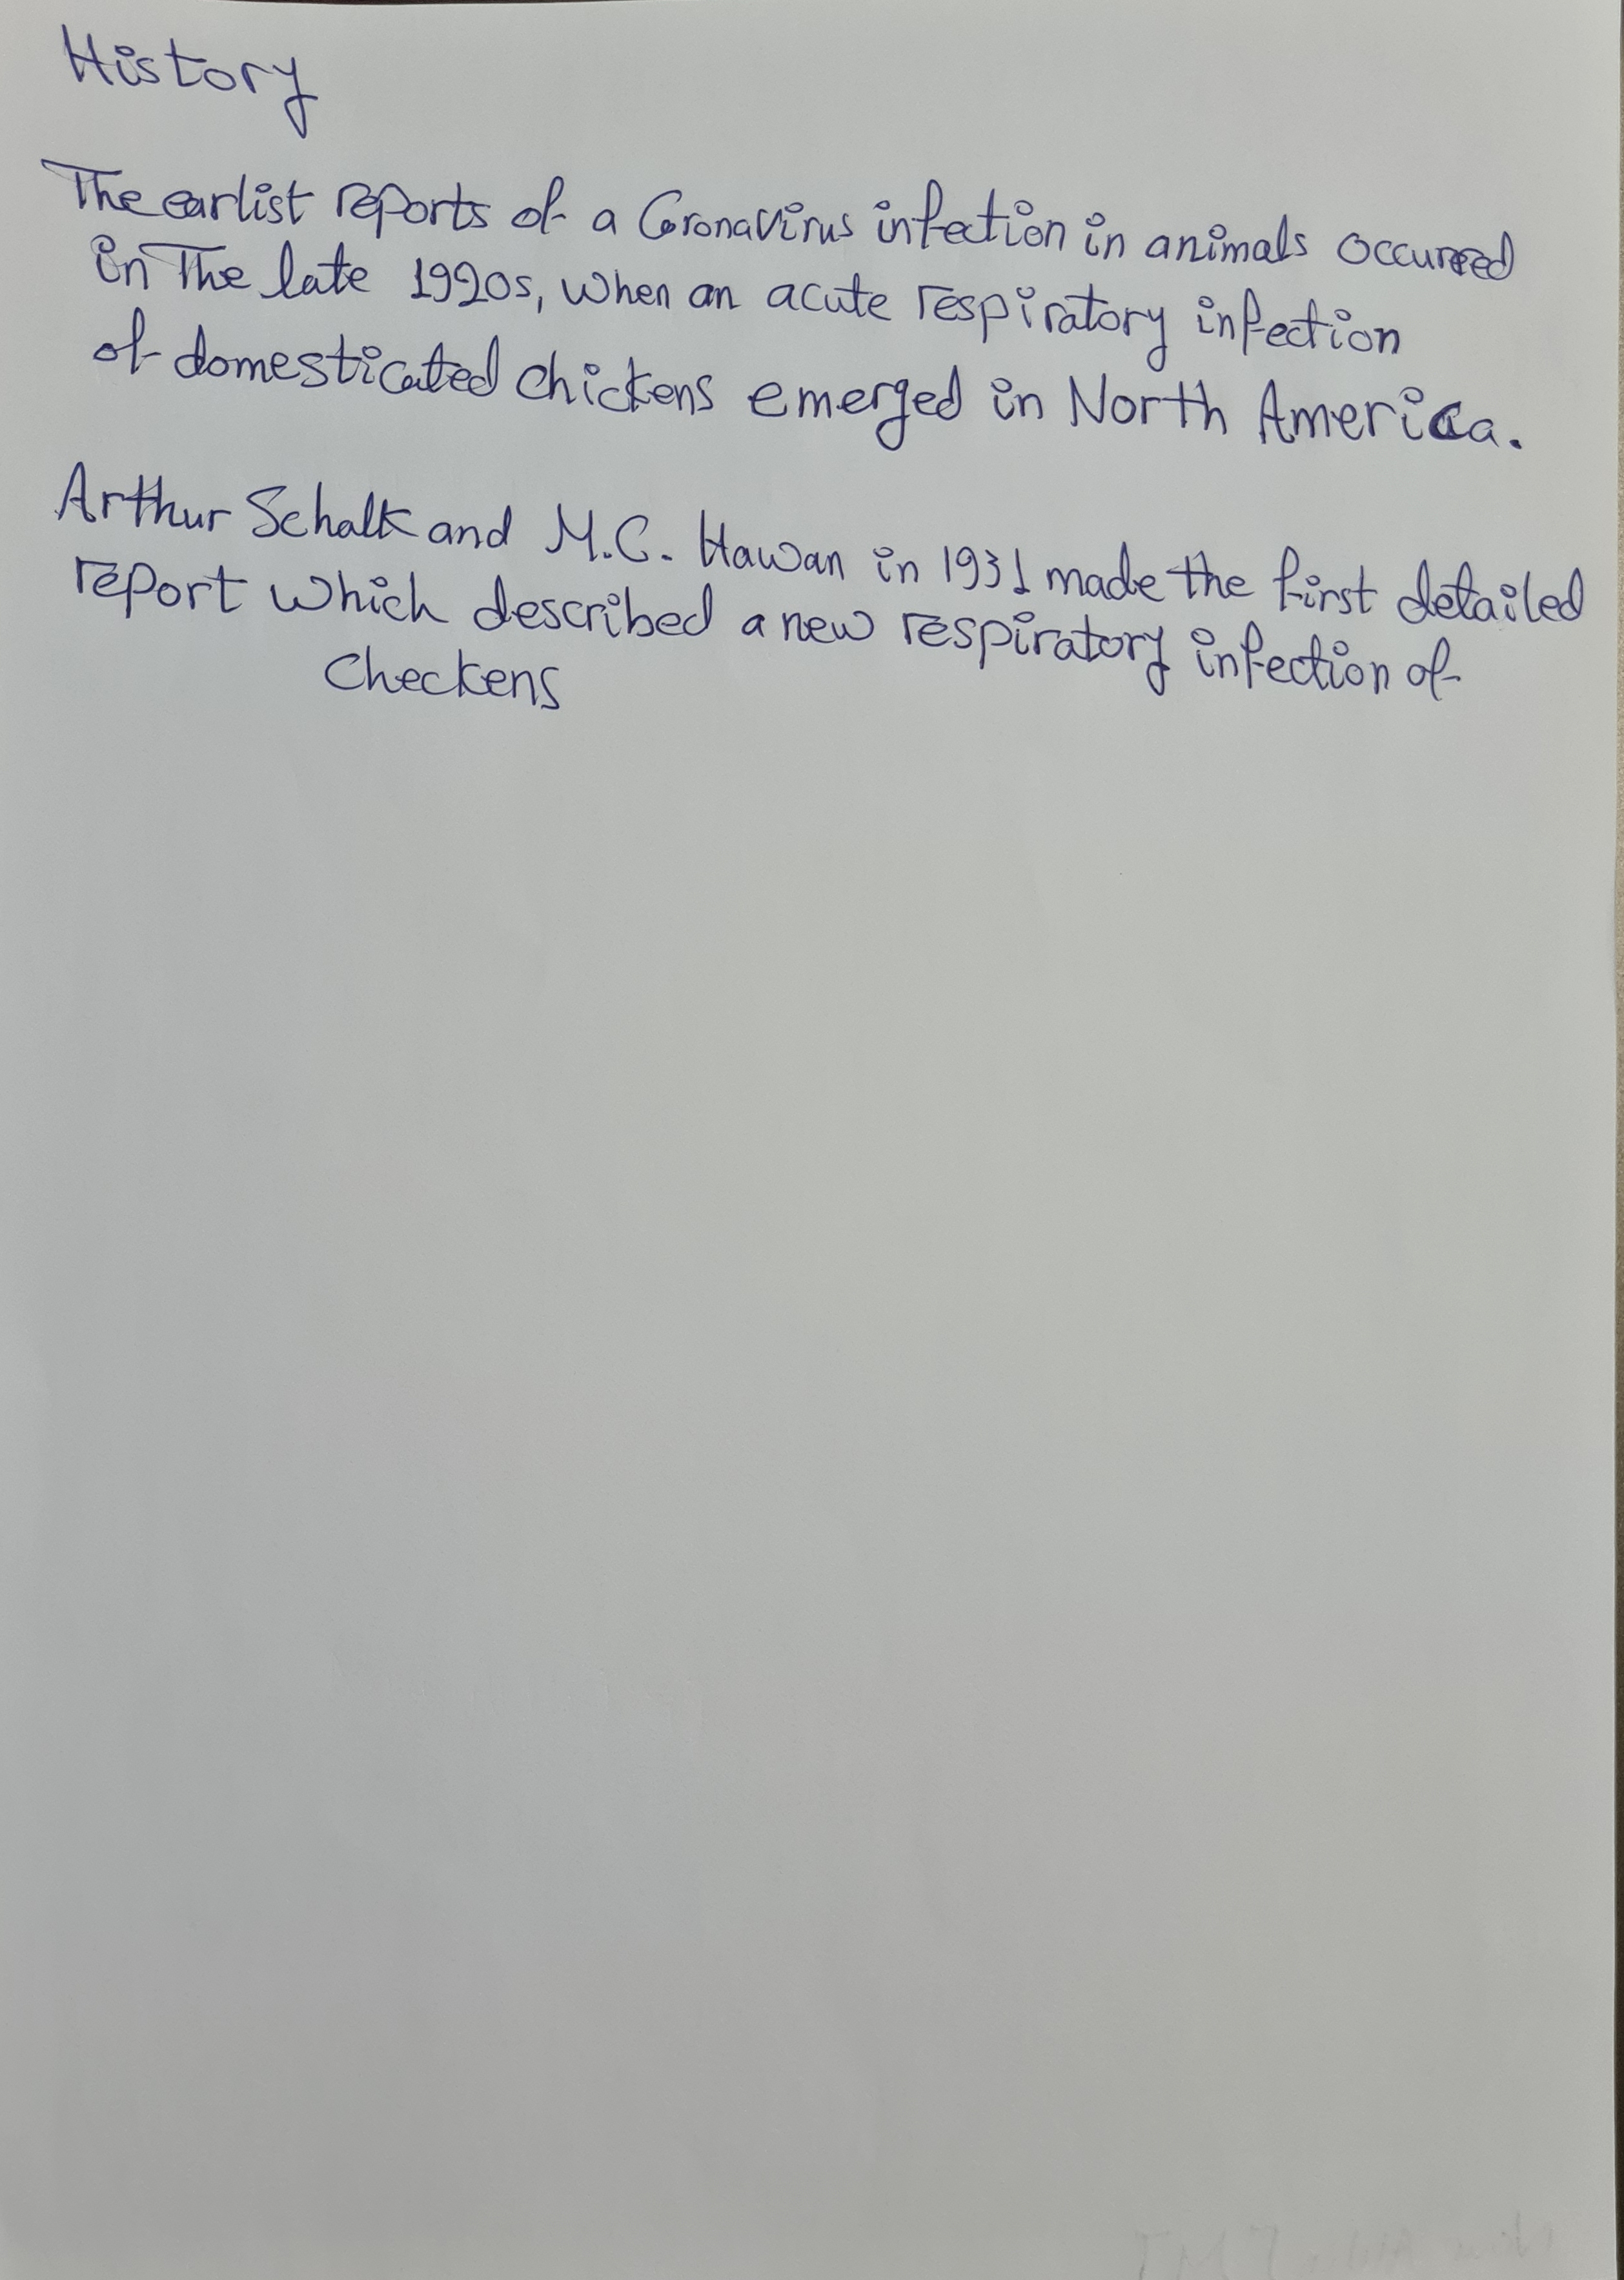 History
The earlist reports of a Coronavirus infection in animals occurred
in The late 1920s, when an acute respiratory infection
of domesticated chickens emerged in North America.
Arthur Schalk and M.C. Hawan in 1931 made the first detailed
report which described a new respiratory infection of
Checkens